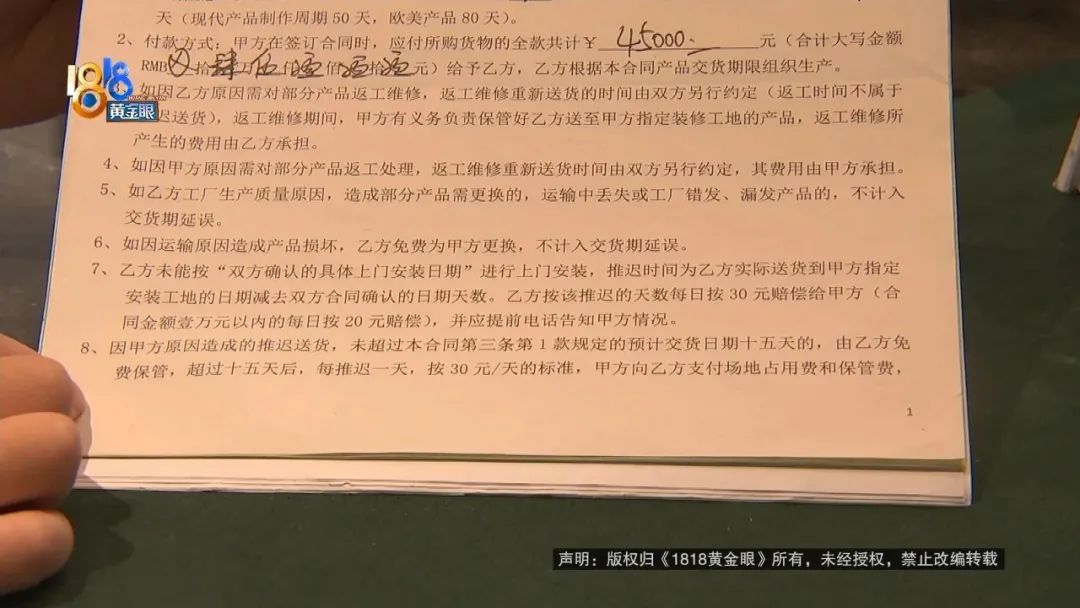 天（现代产品制作周期 50 天，欧美产品 80 天）。
2、付款方式：甲方在签订合同时，应付所购货物的全款共计￥ 45000. 元（合计大写金额
RMB 拾 肆 万 伍 仟 佰 拾 元）给予乙方，乙方根据本合同产品交货期限组织生产。
如因乙方原因需对部分产品返工维修，返工维修重新送货的时间由双方另行约定（返工时间不属于
迟送货），返工维修期间，甲方有义务负责保管好乙方送至甲方指定装修工地的产品，返工维修所
产生的费用由乙方承担。
4、如因甲方原因需对部分产品返工处理，返工维修重新送货时间由双方另行约定，其费用由甲方承担。
5、如乙方工厂生产质量原因，造成部分产品需更换的，运输中丢失或工厂错发、漏发产品的，不计入
交货期延误。
6、如因运输原因造成产品损坏，乙方免费为甲方更换，不计入交货期延误。
7、乙方未能按“双方确认的具体上门安装日期”进行上门安装，推迟时间为乙方实际送货到甲方指定
安装工地的日期减去双方合同确认的日期天数。乙方按该推迟的天数每日按 30 元赔偿给甲方（合
同金额壹万元以内的每日按 20 元赔偿），并应提前电话告知甲方情况。
8、因甲方原因造成的推迟送货，未超过本合同第三条第 1 款规定的预计交货日期十五天的，由乙方免
费保管，超过十五天后，每推迟一天，按 30 元/天的标准，甲方向乙方支付场地占用费和保管费，
1
1818
黄金眼
声明：版权归《1818黄金眼》所有，未经授权，禁止改编转载